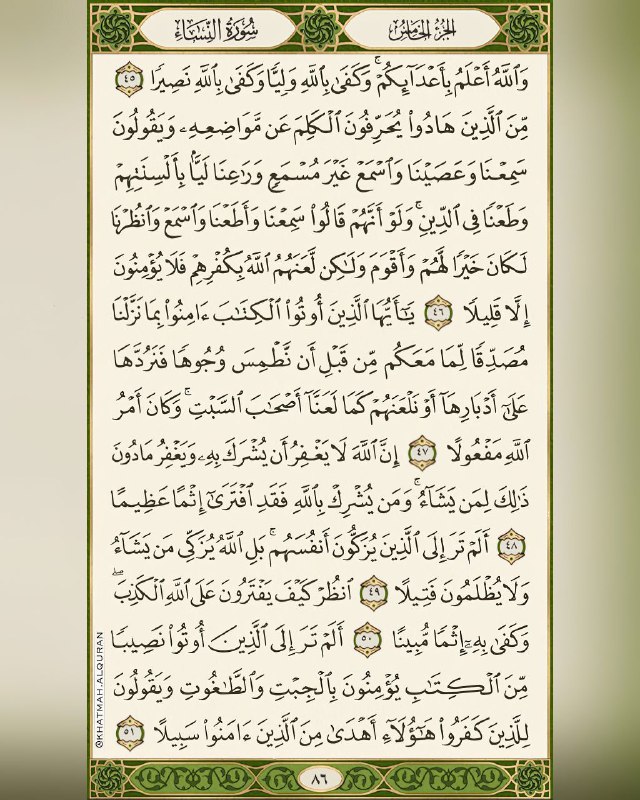 الجزء الخامس
سورة النساء
وَٱللَّهُ أَعْلَمُ بِأَعْدَآئِكُمْ ۚ وَكَفَىٰ بِٱللَّهِ وَلِيًّا وَكَفَىٰ بِٱللَّهِ نَصِيرًا ٤٥
مِّنَ ٱلَّذِينَ هَادُوا۟ يُحَرِّفُونَ ٱلْكَلِمَ عَن مَّوَاضِعِهِۦ وَيَقُولُونَ
سَمِعْنَا وَعَصَيْنَا وَٱسْمَعْ غَيْرَ مُسْمَعٍ وَرَٰعِنَا لَيًّۢا بِأَلْسِنَتِهِمْ
وَطَعْنًا فِى ٱلدِّينِ ۚ وَلَوْ أَنَّهُمْ قَالُوا۟ سَمِعْنَا وَأَطَعْنَا وَٱسْمَعْ وَٱنظُرْنَا
لَكَانَ خَيْرًا لَّهُمْ وَأَقْوَمَ وَلَـٰكِن لَّعَنَهُمُ ٱللَّهُ بِكُفْرِهِمْ فَلَا يُؤْمِنُونَ
إِلَّا قَلِيلًا ٤٦ يَـٰٓأَيُّهَا ٱلَّذِينَ أُوتُوا۟ ٱلْكِتَـٰبَ ءَامِنُوا۟ بِمَا نَزَّلْنَا
مُصَدِّقًا لِّمَا مَعَكُم مِّن قَبْلِ أَن نَّطْمِسَ وُجُوهًا فَنَرُدَّهَا
عَلَىٰٓ أَدْبَارِهَآ أَوْ نَلْعَنَهُمْ كَمَا لَعَنَّآ أَصْحَـٰبَ ٱلسَّبْتِ ۚ وَكَانَ أَمْرُ
ٱللَّهِ مَفْعُولًا ٤٧ إِنَّ ٱللَّهَ لَا يَغْفِرُ أَن يُشْرَكَ بِهِۦ وَيَغْفِرُ مَا دُونَ
ذَٰلِكَ لِمَن يَشَآءُ ۚ وَمَن يُشْرِكْ بِٱللَّهِ فَقَدِ ٱفْتَرَىٰٓ إِثْمًا عَظِيمًا
٤٨ أَلَمْ تَرَ إِلَى ٱلَّذِينَ يُزَكُّونَ أَنفُسَهُم ۚ بَلِ ٱللَّهُ يُزَكِّى مَن يَشَآءُ
وَلَا يُظْلَمُونَ فَتِيلًا ٤٩ ٱنظُرْ كَيْفَ يَفْتَرُونَ عَلَى ٱللَّهِ ٱلْكَذِبَ ۖ
وَكَفَىٰ بِهِۦٓ إِثْمًا مُّبِينًا ٥٠ أَلَمْ تَرَ إِلَى ٱلَّذِينَ أُوتُوا۟ نَصِيبًا
مِّنَ ٱلْكِتَـٰبِ يُؤْمِنُونَ بِٱلْجِبْتِ وَٱلطَّـٰغُوتِ وَيَقُولُونَ
لِلَّذِينَ كَفَرُوا۟ هَـٰٓؤُلَآءِ أَهْدَىٰ مِنَ ٱلَّذِينَ ءَامَنُوا۟ سَبِيلًا ٥١
٨٦
@KHATMAH.ALQURAN